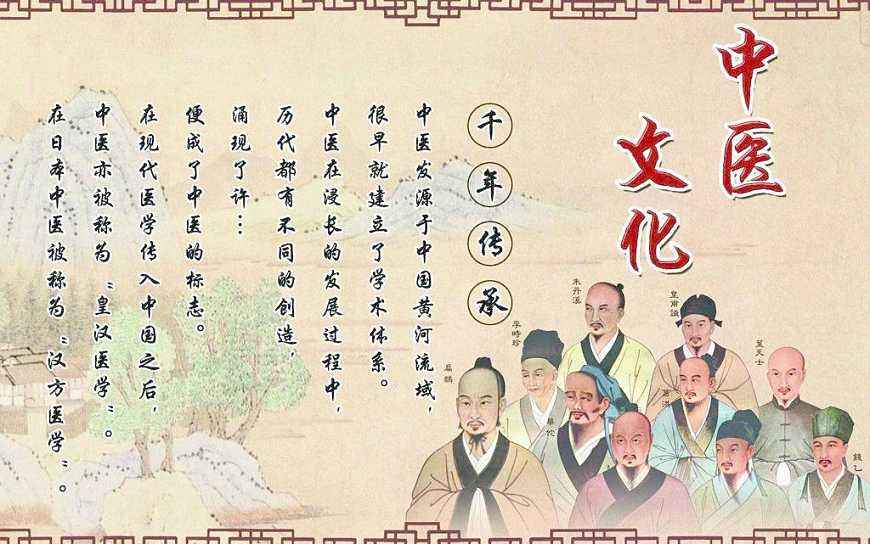 中医
文化
千年传承
中医发源于中国黄河流域，
很早就建立了学术体系。
中医在漫长的发展过程中，
历代都有不同的创造，
涌现了许…
便成了中医的标志。
在现代医学传入中国之后，
中医亦被称为“皇汉医学”。
在日本中医被称为“汉方医学”。
朱丹溪
皇甫謐
李時珍
扁鵲
華佗
葛洪
錢乙